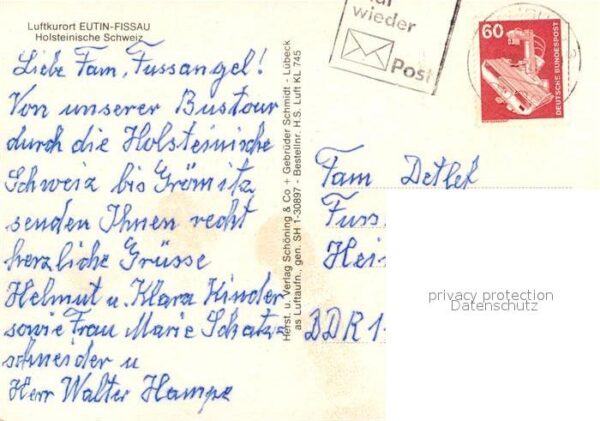 Luftkurort EUTIN-FISSAU
Holsteinische Schweiz
Liebe Fam. Fussangel!
Von unserer Bustour
durch die Holsteinische
Schweiz bis Grömitz
senden Ihnen recht
herzliche Grüsse
Helmut u. Klara Kinder
sowie Frau Marie Schatz-
schneider u
Herr Walter Hampe
Herst. u. Verlag Schöning & Co + Gebrüder Schmidt - Lübeck
as Luftaufn., gen. SH 1-30897 - Bestellnr. H.S. Luft KL 745
wieder
Post
60
DEUTSCHE BUNDESPOST
Fam Detlef
Fuss
Hei
DDR 1
privacy protection
Datenschutz